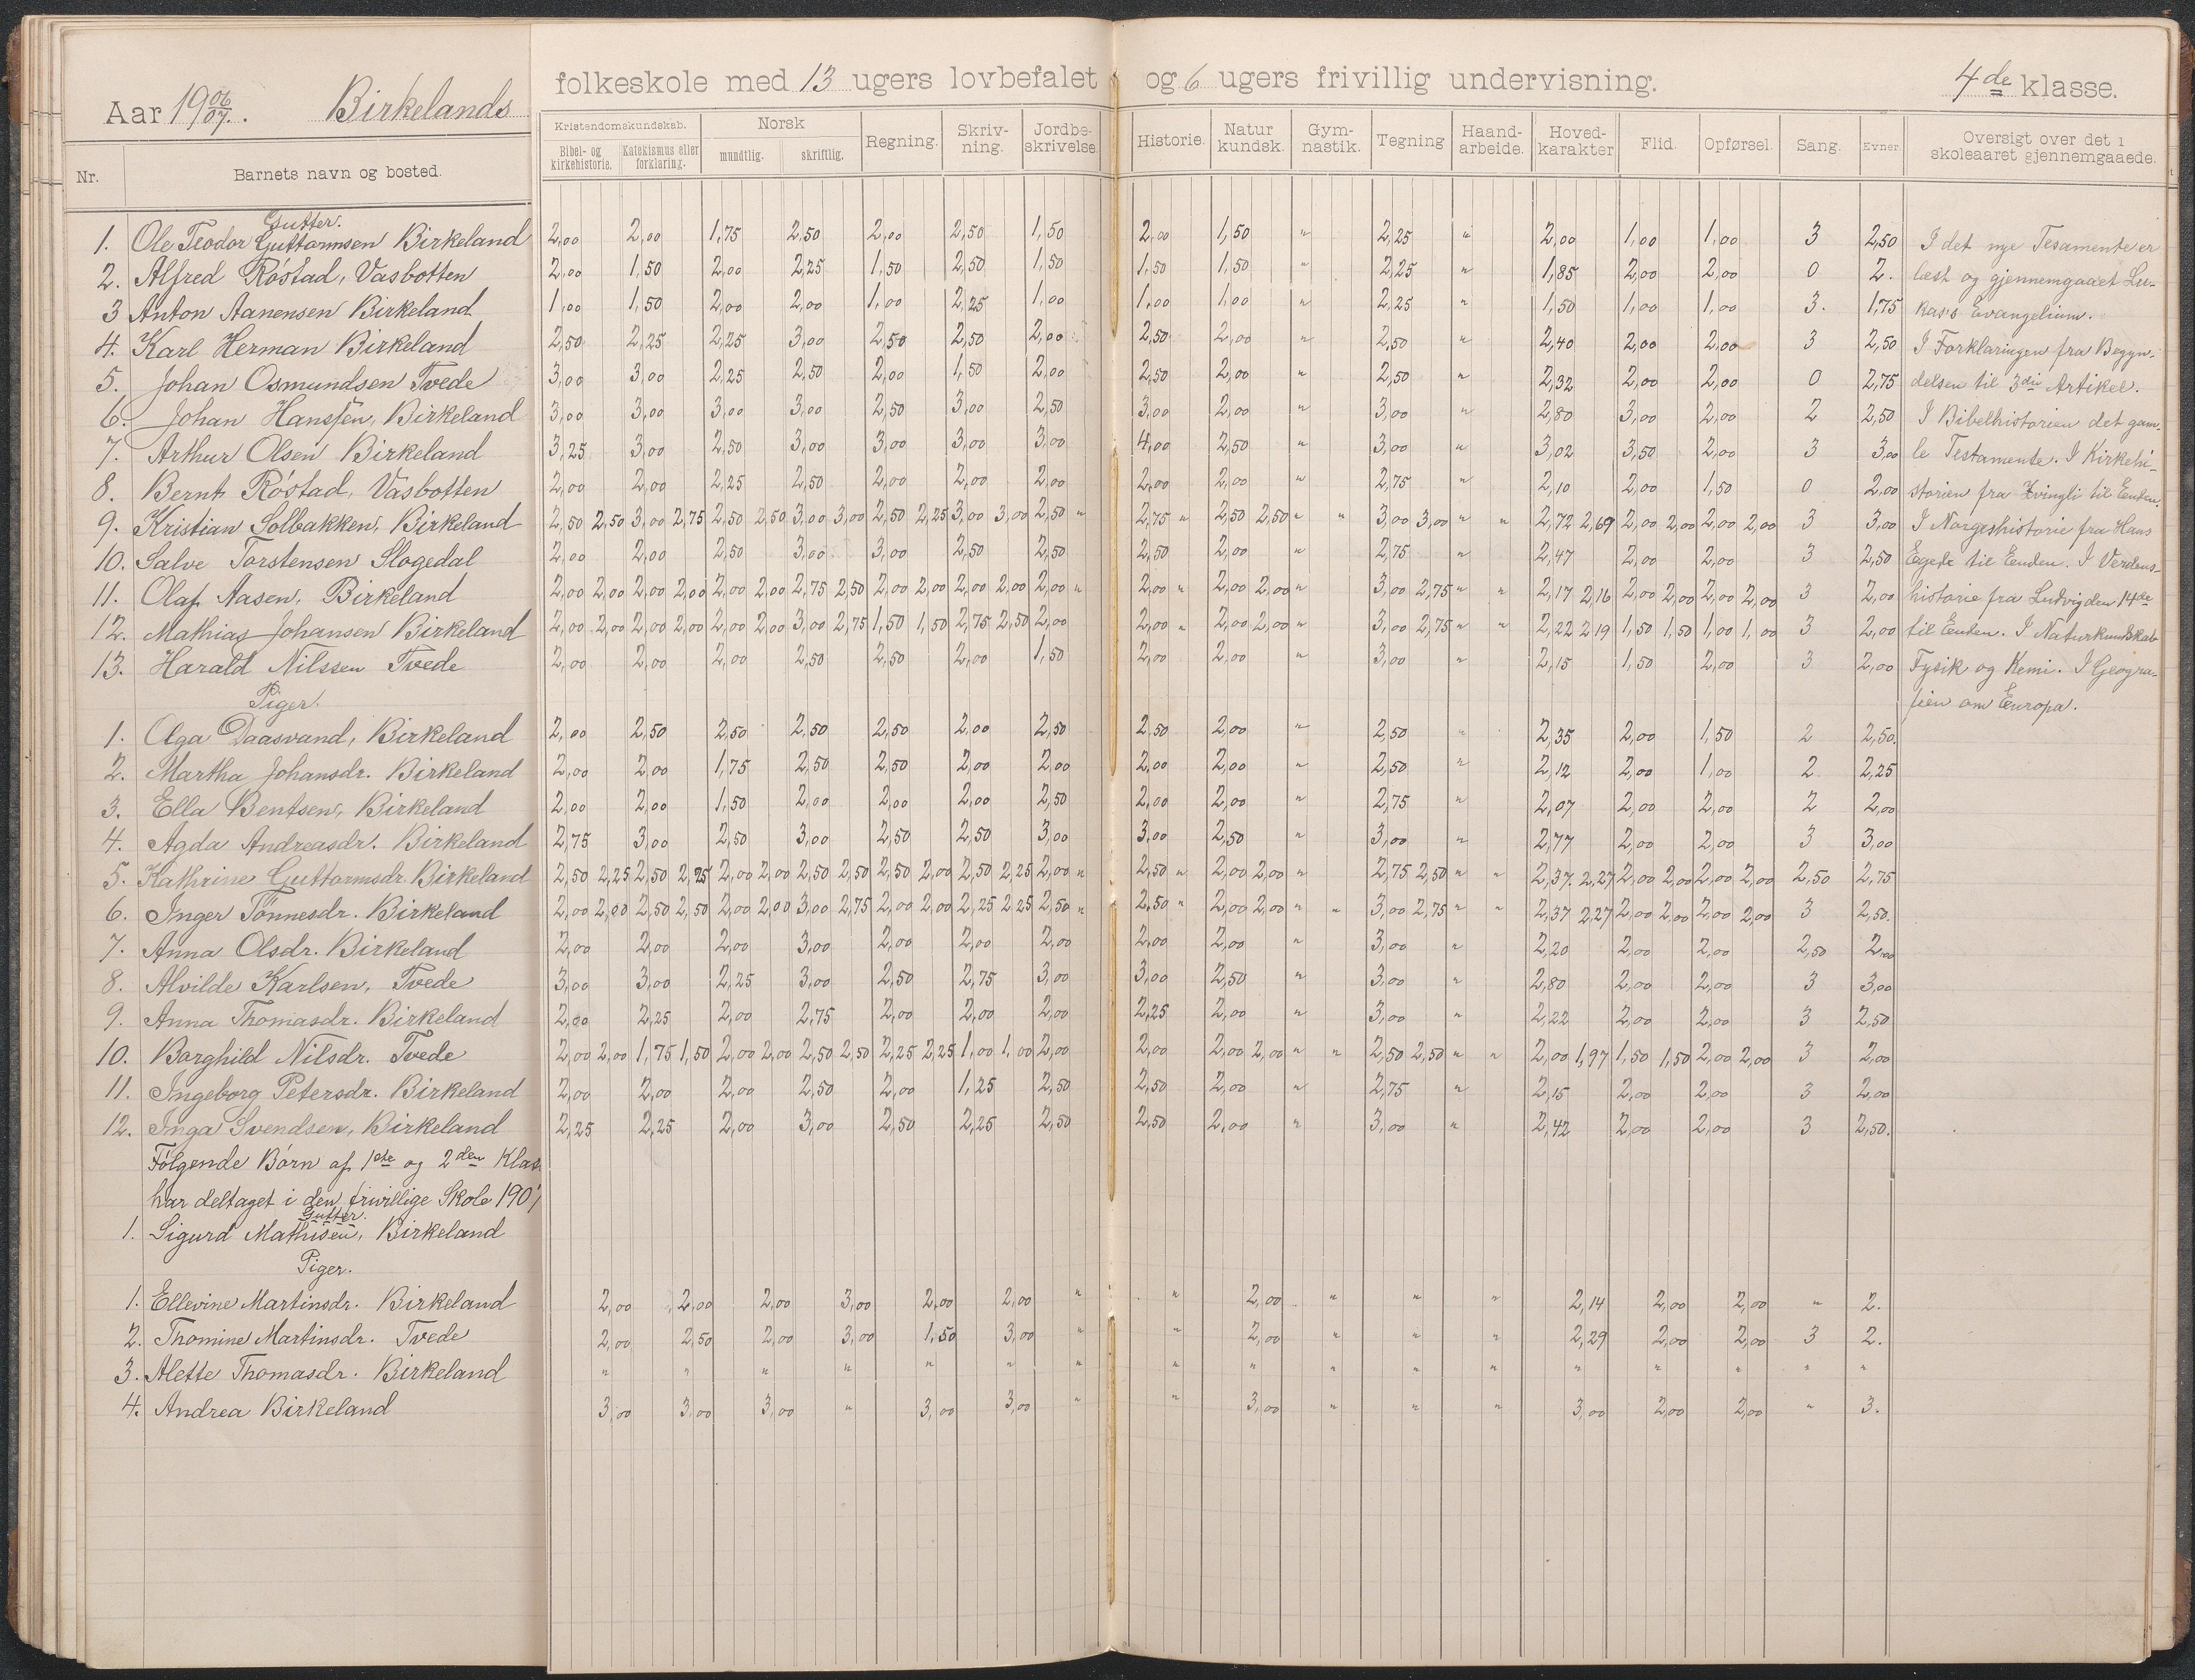 Aar 19 06/07. Birkelands folkeskole med 13 ugers lovbefalet og 6 ugers frivillig undervisning. 4de klasse.
Nr. Barnets navn og bosted. Kristendomskundskab. Bibel- og kirkehistorie. Katekismus eller forklaring. Norsk mundtlig. skriftlig. Regning. Skriv-ning. Jordbe-skrivelse. Historie. Natur kundsk. Gym-nastik. Tegning Haand-arbeide. Hoved-karakter Flid. Opførsel. Sang. Evner. Oversigt over det i skoleaaret gjennemgaaede.
Gutter.
1. Ole Teodor Guttormsen Birkeland 2,00 2,00 1,75 2,50 2,00 2,50 1,50 2,00 1,50 " 2,25 " 2,00 1,00 1,00 3 2,50 I det nye Tesamente er
2. Alfred Röstad, Vasbotten 2,00 1,50 2,00 2,25 1,50 2,50 1,50 1,50 1,50 " 2,25 " 1,85 2,00 2,00 0 2. læst og gjennemgaaet Lu-
3 Anton Aanensen Birkeland 1,00 1,50 2,00 2,00 1,00 2,25 1,00 1,00 1,00 " 2,25 " 1,50 1,00 1,00 3. 1,75 kas's Evangelium.
4. Karl Herman Birkeland 2,50 2,25 2,25 3,00 2,50 2,50 2,00 2,50 2,00 " 2,50 " 2,40 2,00 2,00 3 2,50 I Forklaringen fra Begyn-
5. Johan Osmundsen Tvede 3,00 3,00 2,25 2,50 2,00 1,50 2,00 2,50 2,00 " 2,50 " 2,32 2,00 2,00 0 2,75 delsen til 3die Artikel.
6. Johan Hanssen, Birkeland 3,00 3,00 3,00 3,00 2,50 3,00 2,50 3,00 2,00 " 3,00 " 2,80 3,00 2,00 2 2,50 I Bibelhistorien det gam-
7. Arthur Olsen Birkeland 3,25 3,00 2,50 3,00 3,00 3,00 3,00 4,00 2,50 " 3,00 " 3,02 3,50 2,00 3 3,00 le Testamente. I Kirkehi-
8. Bernt Röstad, Vasbotten 2,00 2,00 2,25 2,50 2,00 2,00 2,00 2,00 2,00 " 2,75 " 2,10 2,00 1,50 0 2,00 storien fra Zvingli til Enden.
9. Kristian Solbakken, Birkeland 2,50 2,50 3,00 2,75 2,50 2,50 3,00 3,00 2,50 2,25 3,00 3,00 2,50 " 2,75 " 2,50 2,50 " " 3,00 3,00 " " 2,72 2,69 2,00 2,00 2,00 2,00 3 3,00 I Norgeshistorie fra Hans
10. Salve Torstensen Slogedal 2,00 2,00 2,50 3,00 3,00 2,50 2,50 2,50 2,00 " 2,75 " 2,47 2,00 2,00 3 2,50 Egede til Enden. I Verdens-
11. Olaf Aasen, Birkeland 2,00 2,00 2,00 2,00 2,00 2,00 2,75 2,50 2,00 2,00 2,00 2,00 2,00 " 2,00 " 2,00 2,00 " 3,00 2,75 " " 2,17 2,16 2,00 2,00 2,00 2,00 3 2,00 historie fra Ludvig den 14de
12. Mathias Johansen Birkeland 2,00 2,00 2,00 2,00 2,00 2,00 3,00 2,75 1,50 1,50 2,75 2,50 2,00 2,00 " 2,00 2,00 " 3,00 2,75 " " 2,22 2,19 1,50 1,50 1,00 1,00 3 2,00 til Enden. I Naturkundskab
13. Harald Nilssen Tvede 2,00 2,00 2,00 2,50 2,50 2,00 1,50 2,00 2,00 " 3,00 " 2,15 1,50 2,00 3 2,00 Fysik og Kemi. I Geogra-
Piger. fien om Europa.
1. Olga Daasvand, Birkeland 2,00 2,50 2,50 2,50 2,50 2,00 2,50 2,50 2,00 " 2,50 " 2,35 2,00 1,50 2 2,50.
2. Martha Johansdr. Birkeland 2,00 2,00 1,75 2,50 2,50 2,00 2,00 2,00 2,00 " 2,50 " 2,12 2,00 1,00 2 2,25
3. Ella Bentsen, Birkeland 2,00 2,00 1,50 2,00 2,00 2,00 2,50 2,00 2,00 " 2,75 " 2,07 2,00 2,00 2 2,00
4. Agda Andreasdr. Birkeland 2,75 3,00 2,50 3,00 2,50 2,50 3,00 3,00 2,50 " 3,00 " 2,77 2,00 2,00 3 3,00
5. Kathrine Guttormsdr. Birkeland 2,50 2,25 2,50 2,25 2,00 2,00 2,50 2,50 2,50 2,00 2,50 2,25 2,00 " 2,50 " 2,00 2,00 " 2,75 2,50 " " 2,37 2,27 2,00 2,00 2,00 2,00 2,50 2,75
6. Inger Tönnesdr. Birkeland 2,00 2,00 2,50 2,50 2,00 2,00 3,00 2,75 2,00 2,00 2,25 2,25 2,50 " 2,50 " 2,00 2,00 " " 3,00 2,75 " " 2,37 2,27 2,00 2,00 2,00 2,00 3 2,50.
7. Anna Olsdr. Birkeland 2,00 2,00 2,00 3,00 2,00 2,00 2,00 2,00 2,00 " 3,00 " 2,20 2,00 2,00 2,50 2,00
8. Alvilde Karlsen, Tvede 3,00 3,00 2,25 3,00 2,50 2,75 3,00 3,00 2,50 " 3,00 " 2,80 2,00 2,00 3 3,00
9. Anna Thomasdr. Birkeland 2,00 2,25 2,00 2,75 2,00 2,00 2,00 2,25 2,00 " 3,00 " 2,22 2,00 2,00 3 2,50
10. Borghild Nilsdr. Tvede 2,00 2,00 1,75 1,50 2,00 2,00 2,50 2,50 2,25 2,25 1,00 1,00 2,00 2,00 2,00 2,00 " " 2,50 2,50 " " 2,00 1,97 1,50 1,50 2,00 2,00 3 2,00
11. Ingeborg Petersdr. Birkeland 2,00 2,00 2,00 2,50 2,00 1,25 2,50 2,50 2,00 " 2,75 " 2,15 2,00 2,00 3 2,00
12. Inga Svendsen, Birkeland 2,25 2,25 2,00 3,00 2,50 2,25 2,50 2,50 2,00 " 3,00 " 2,42 2,00 2,00 3 2,50.
Fölgende Börn af 1ste og 2den Klas
har deltaget i den frivillige Skole 1907
Gutter.
1. Sigurd Mathisen, Birkeland
Piger.
1. Ellevine Martinsdr. Birkeland 2,00 2,00 2,00 3,00 2,00 2,00 " " 2,00 " " " 2,14 2,00 2,00 " 2.
2. Thomine Martinsdr. Tvede 2,00 2,50 2,00 3,00 1,50 3,00 " " 2,00 " " " 2,29 2,00 2,00 3 2.
3. Alette Thomasdr. Birkeland " " " " " " " " " " " " " " " " "
4. Andrea Birkeland 3,00 3,00 3,00 " 3,00 3,00 " " 3,00 " " " 3,00 2,00 2,00 " 3.